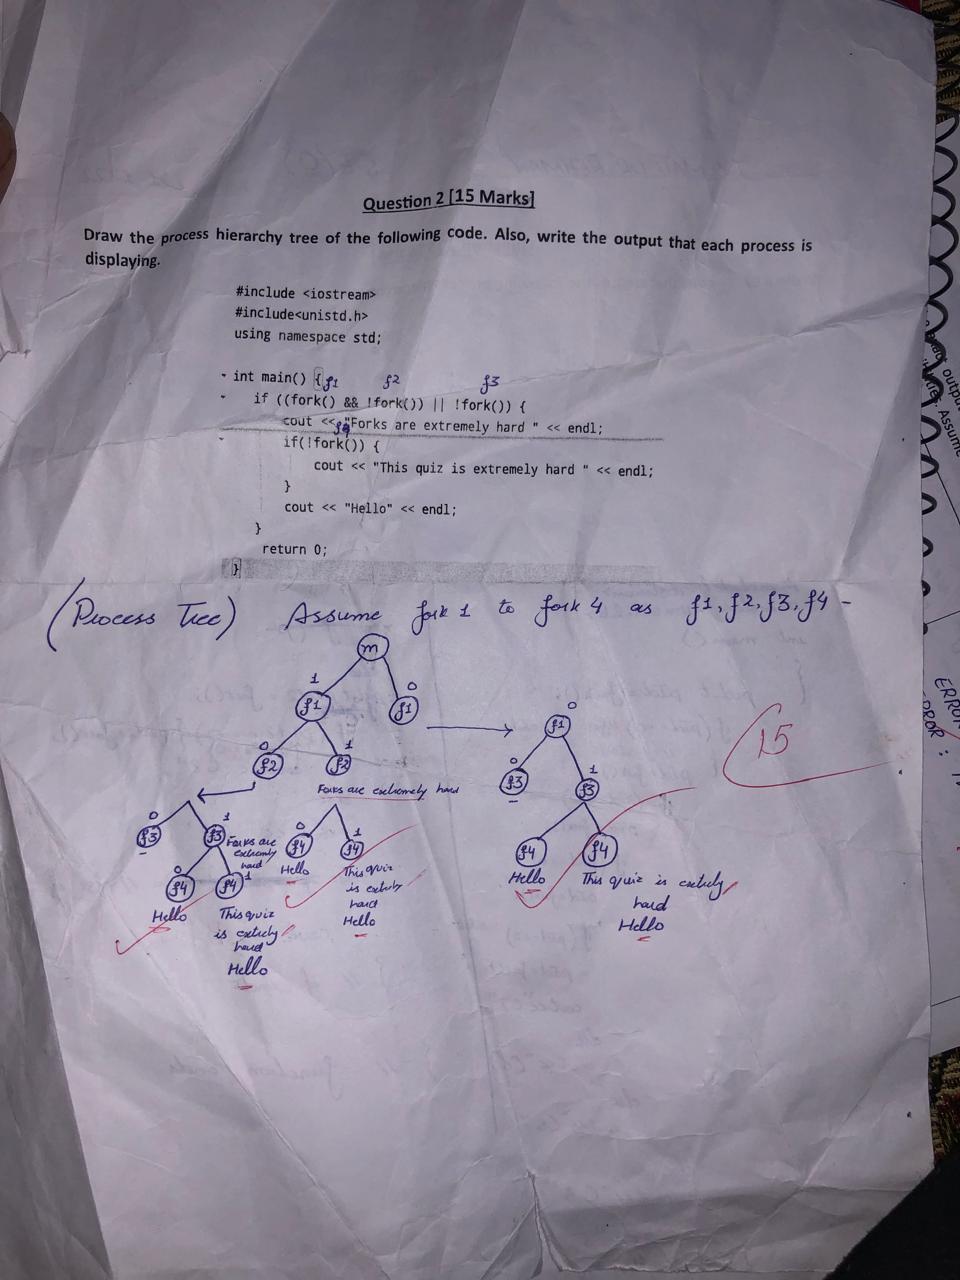 Question 2 [15 Marks]
Draw the process hierarchy tree of the following code. Also, write the output that each process is
displaying.
#include <iostream>
#include<unistd.h>
using namespace std;
int main() {
f1 f2 f3
if ((fork() && !fork()) || !fork()) {
cout << "Forks are extremely hard " << endl;
f4
if(!fork()) {
cout << "This quiz is extremely hard " << endl;
}
cout << "Hello" << endl;
}
return 0;
}
(Process Tree) Assume fork 1 to fork 4 as f1, f2, f3, f4 -
m
1 0
f1 f1
0
f1
15
0 1
f2 f2
0 1
f3 f3
Forks are extremely hard
0 1
f3 f3
Forks are
extremly
hard
0 1
f4 f4
Hello
This quiz
is extrely
hard
Hello
f4 f4
Hello
This quiz is extrely
hard
Hello
0 1
f4 f4
Hello
This quiz
is extrely
hard
Hello
output
Assume
ERROR
ERROR :